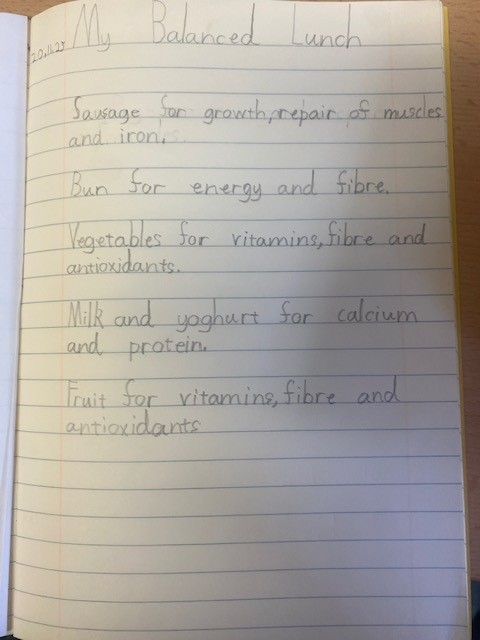 My Balanced Lunch
20.11.25
Sausage for growth, repair of muscles
and iron.
Bun for energy and fibre.
Vegetables for vitamins, fibre and
antioxidants.
Milk and yoghurt for calcium
and protein.
Fruit for vitamins, fibre and
antioxidants